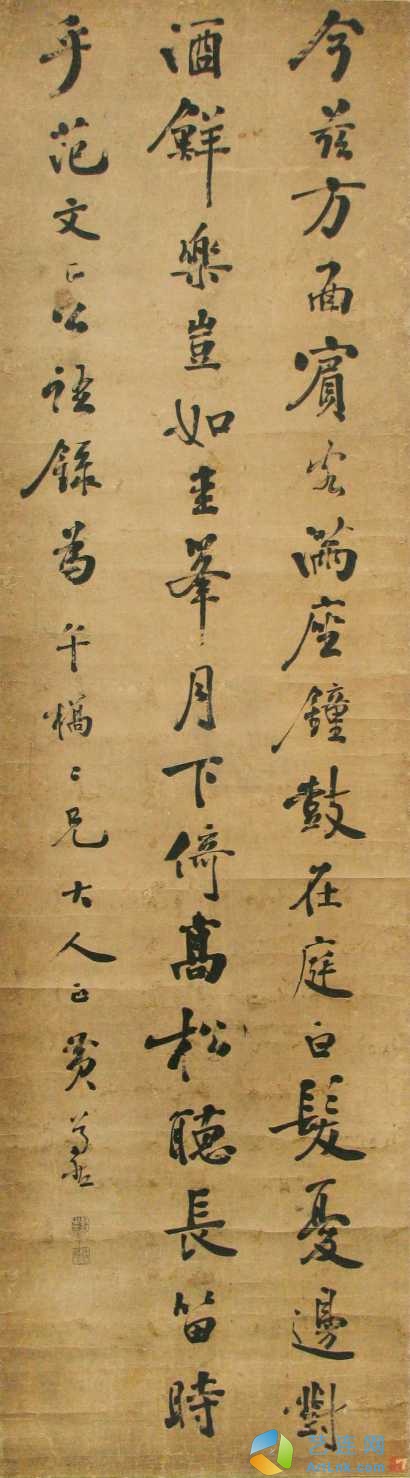 今茲方面賓客滿座鐘鼓在庭白髮憂邊對
酒鮮樂豈如圭峯月下倚高松聽長笛時
乎范文正公語錄為午橋二兄大人正黃